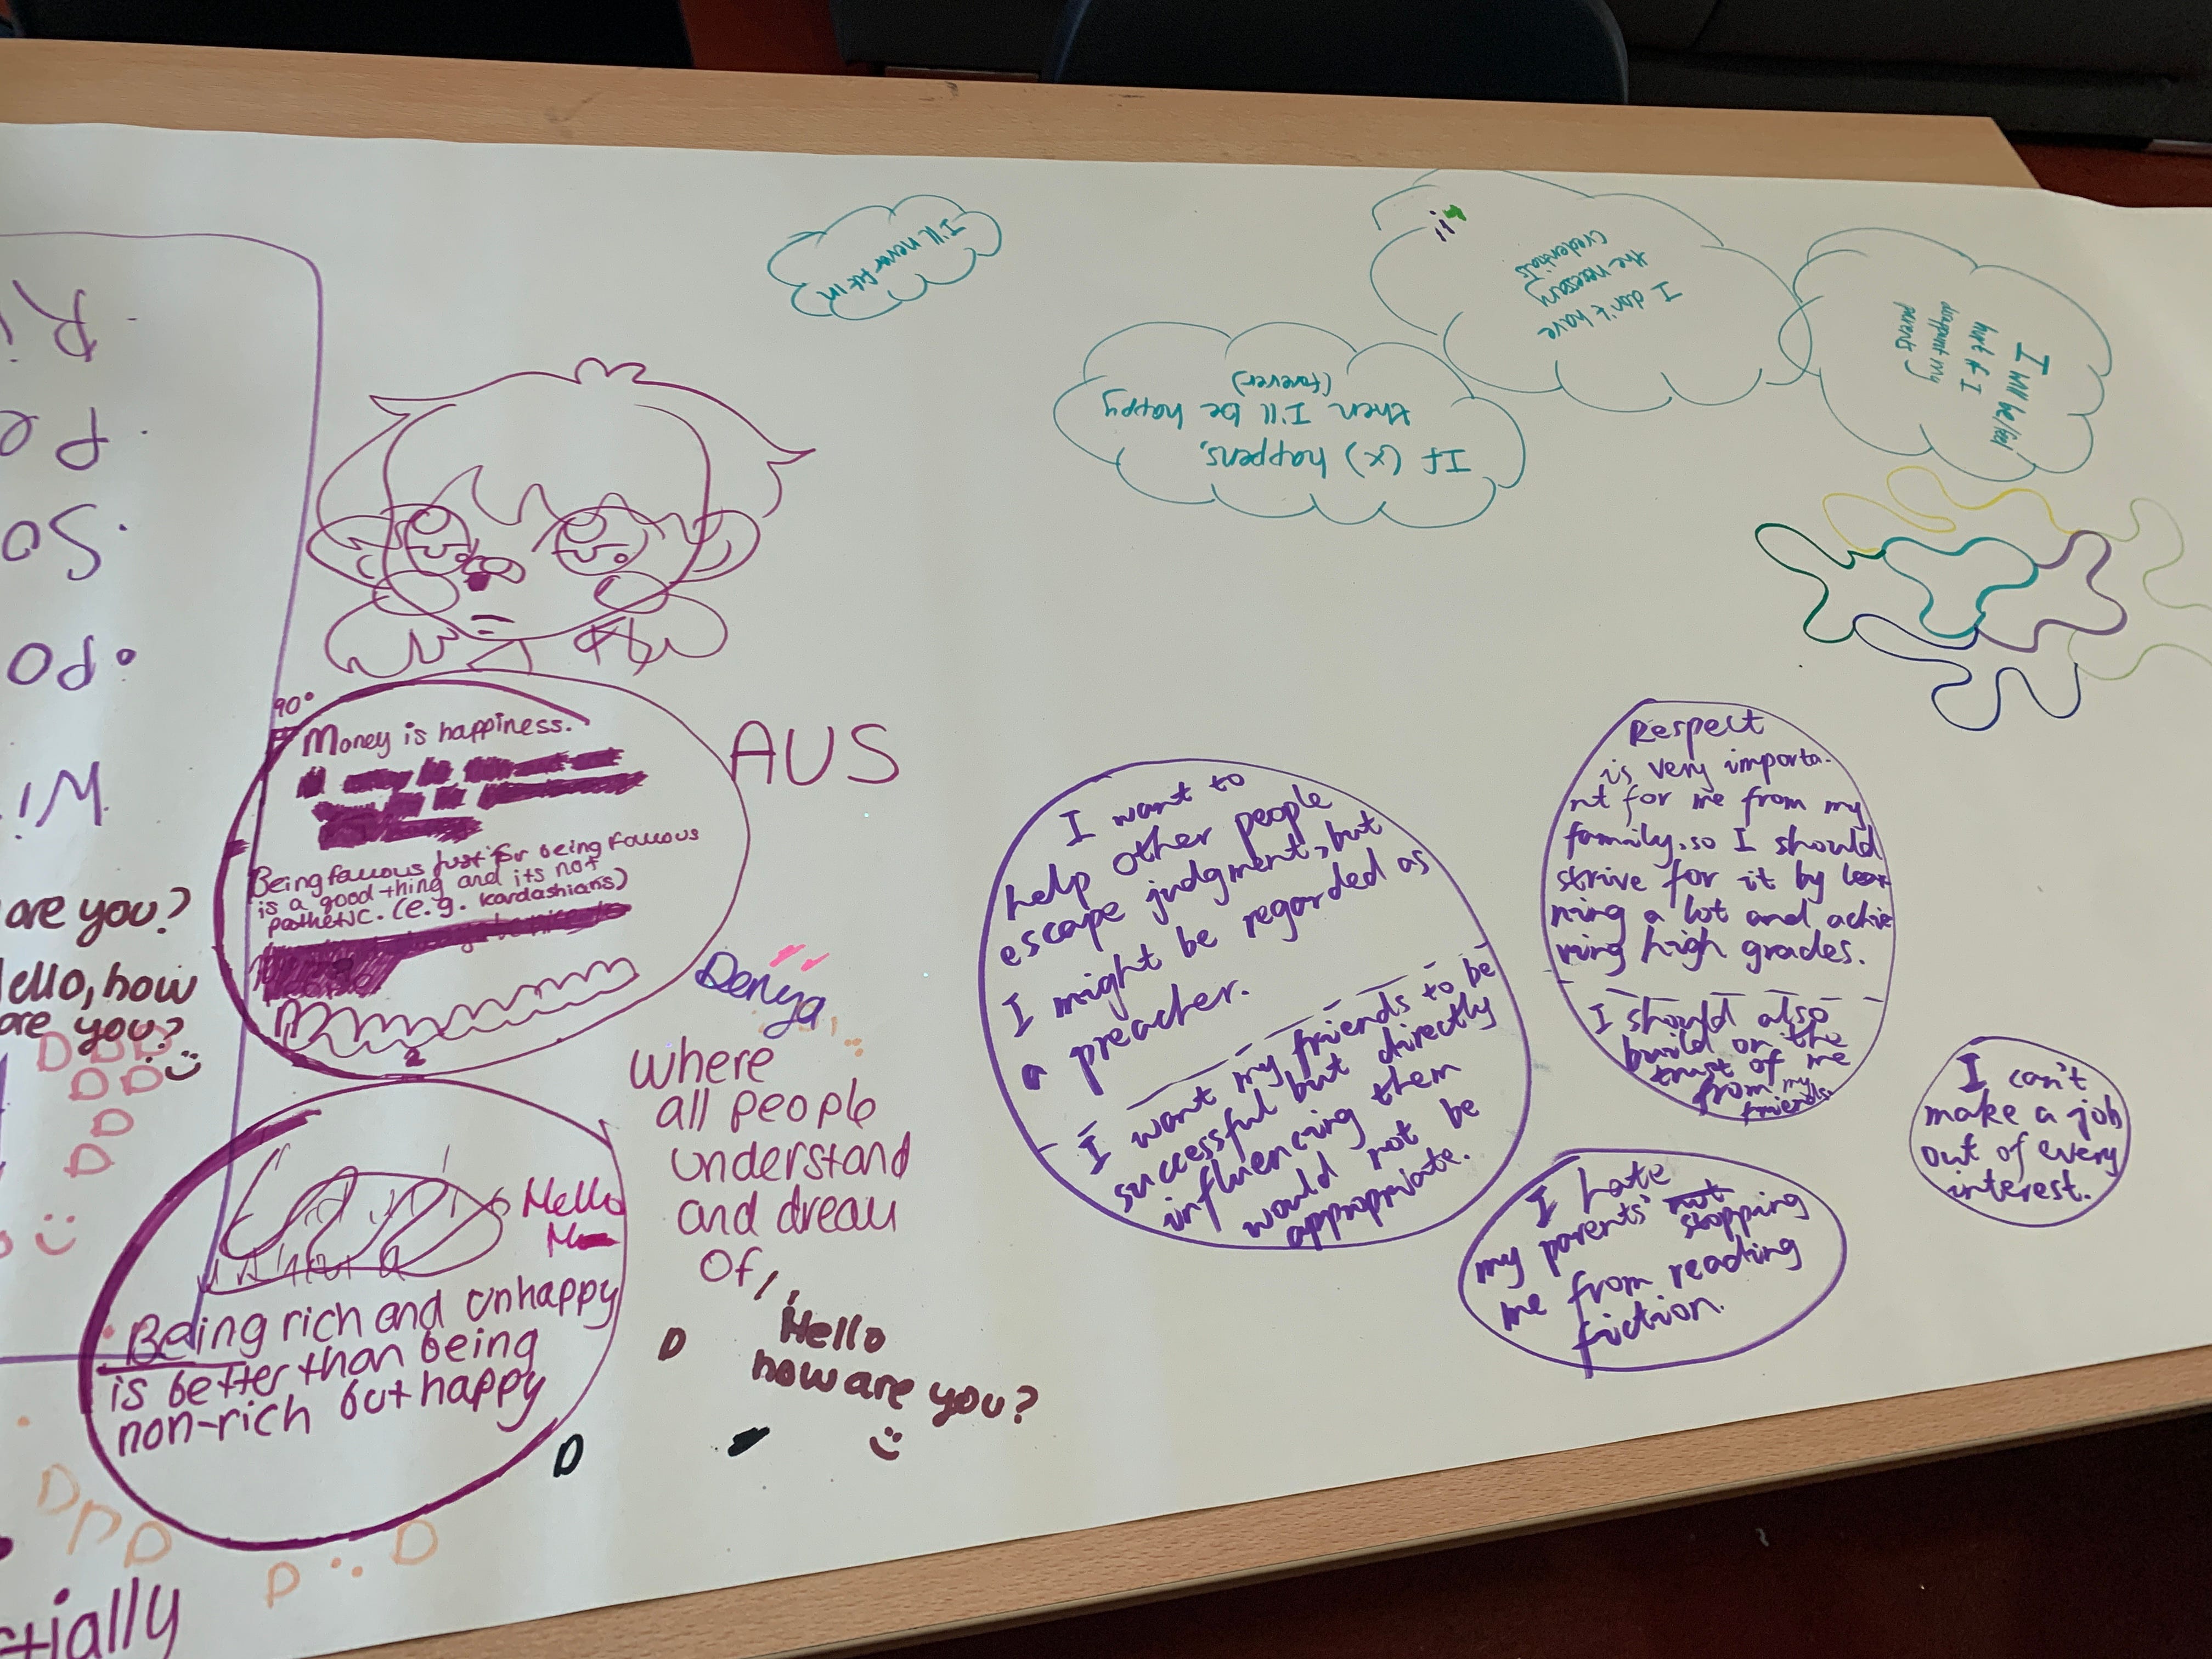 I'll never fit in
I don't have
the necessary
credentials
I will be/feel
hurt if I
disappoint my
parents
If (x) happens,
then I'll be happy
(forever)
Ri
Pe
So
Po
Wi
90°
Money is happiness.
Being famous just for being famous
is a good thing and its not
pathetic. (e.g. kardashians)
AUS
Denya
where
all people
understand
and dream
Of,
Hello
how are you?
are you?
ello, how
are you?
D D D
D D
D
D
Hello
Being rich and unhappy
is better than being
non-rich but happy
D
D
D D D
D D
tially
I want to
help other people
escape judgment, but
I might be regarded as
a preacher.
I want my friends to be
successful but directly
influencing them
would not be
appropriate.
Respect
is very importa-
nt for me from my
family, so I should
strive for it by lear
ning a lot and achie
ving high grades.
I should also
build on the
trust of me
from my
friends.
I hate
my parents' not
stopping
me from reading
fiction.
I can't
make a job
out of every
interest.